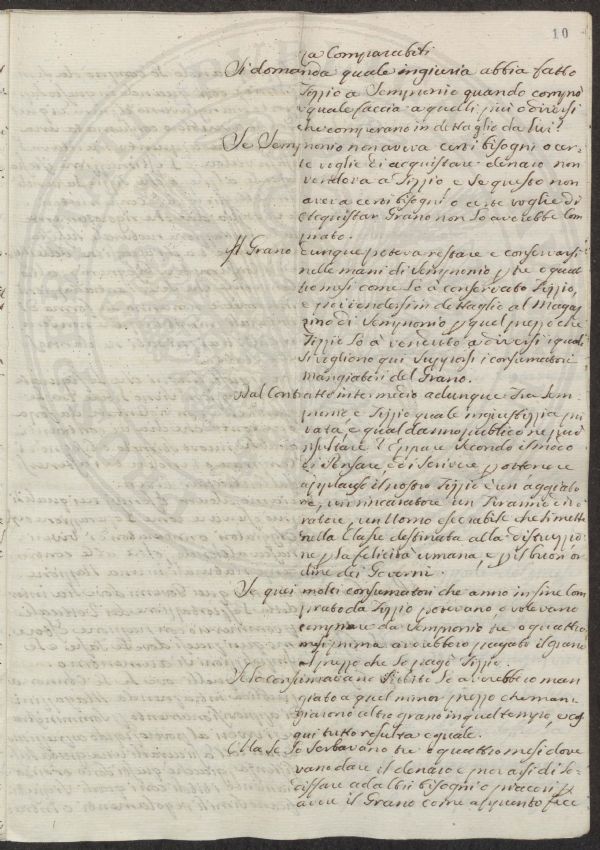 10
ra Comparabili
Si domanda quale ingiuria abbia fatto
Tizzio a Sempronio quando comprò
e quale faccia a quelli più o diversi
che comperano in dettaglio da lui?
Se Sempronio non aveva certi bisogni o cer-
te voglie di acquistare denaro non
vendeva a Tizzio e se questo non
aveva certi bisogni o certe voglie di
acquistar Grano non lo averebbe com
prato.
Il Grano dunque poteva restare e conservarsi
nelle mani di Sempronio p tre o quat
tro mesi come lo à conservato Tizzio,
e poi vendersi in dettaglio al Magaz
zino di Sempronio p quel prezzo che
Tizzio lo à venduto a diversi i quali
si vogliono qui supporsi i consumatori
mangiatori del Grano.
Dal Contratto intermedio adunque tra Sem
pronio e Tizzio quale ingiustizzia pri
vata, e qual danno publico ne può
risultare? Eppure secondo il modo
di Pensare e di scrivere p ottenere
applauso il nostro Tizzio è un aggiotato
re, un incaratore un Tiranno divo
ratore, un Uomo esecrabile che si mette
nella Clase destinata alla distruzzio
ne p la felicità umana, e p il buon or
dine dei Governi.
Se quei molti consumatori che anno in fine Com
prato da Tizzio potevano e volevano
comprare da Sempronio tre o quattro
mesi prima averebbero pagato il grano
al prezzo che lo pagò Tizzio.
Se lo consumavano subito lo averebbero man
giato a quel minor prezzo che man
giarono altro grano in quel tempo, e a
qui tutto resulta eguale.
Ma se lo serbavano tre o quattro mesi dove
vano dare il denaro e privarsi di so
disfare ad altri bisogni o piaceri p
avere il Grano come appunto fece